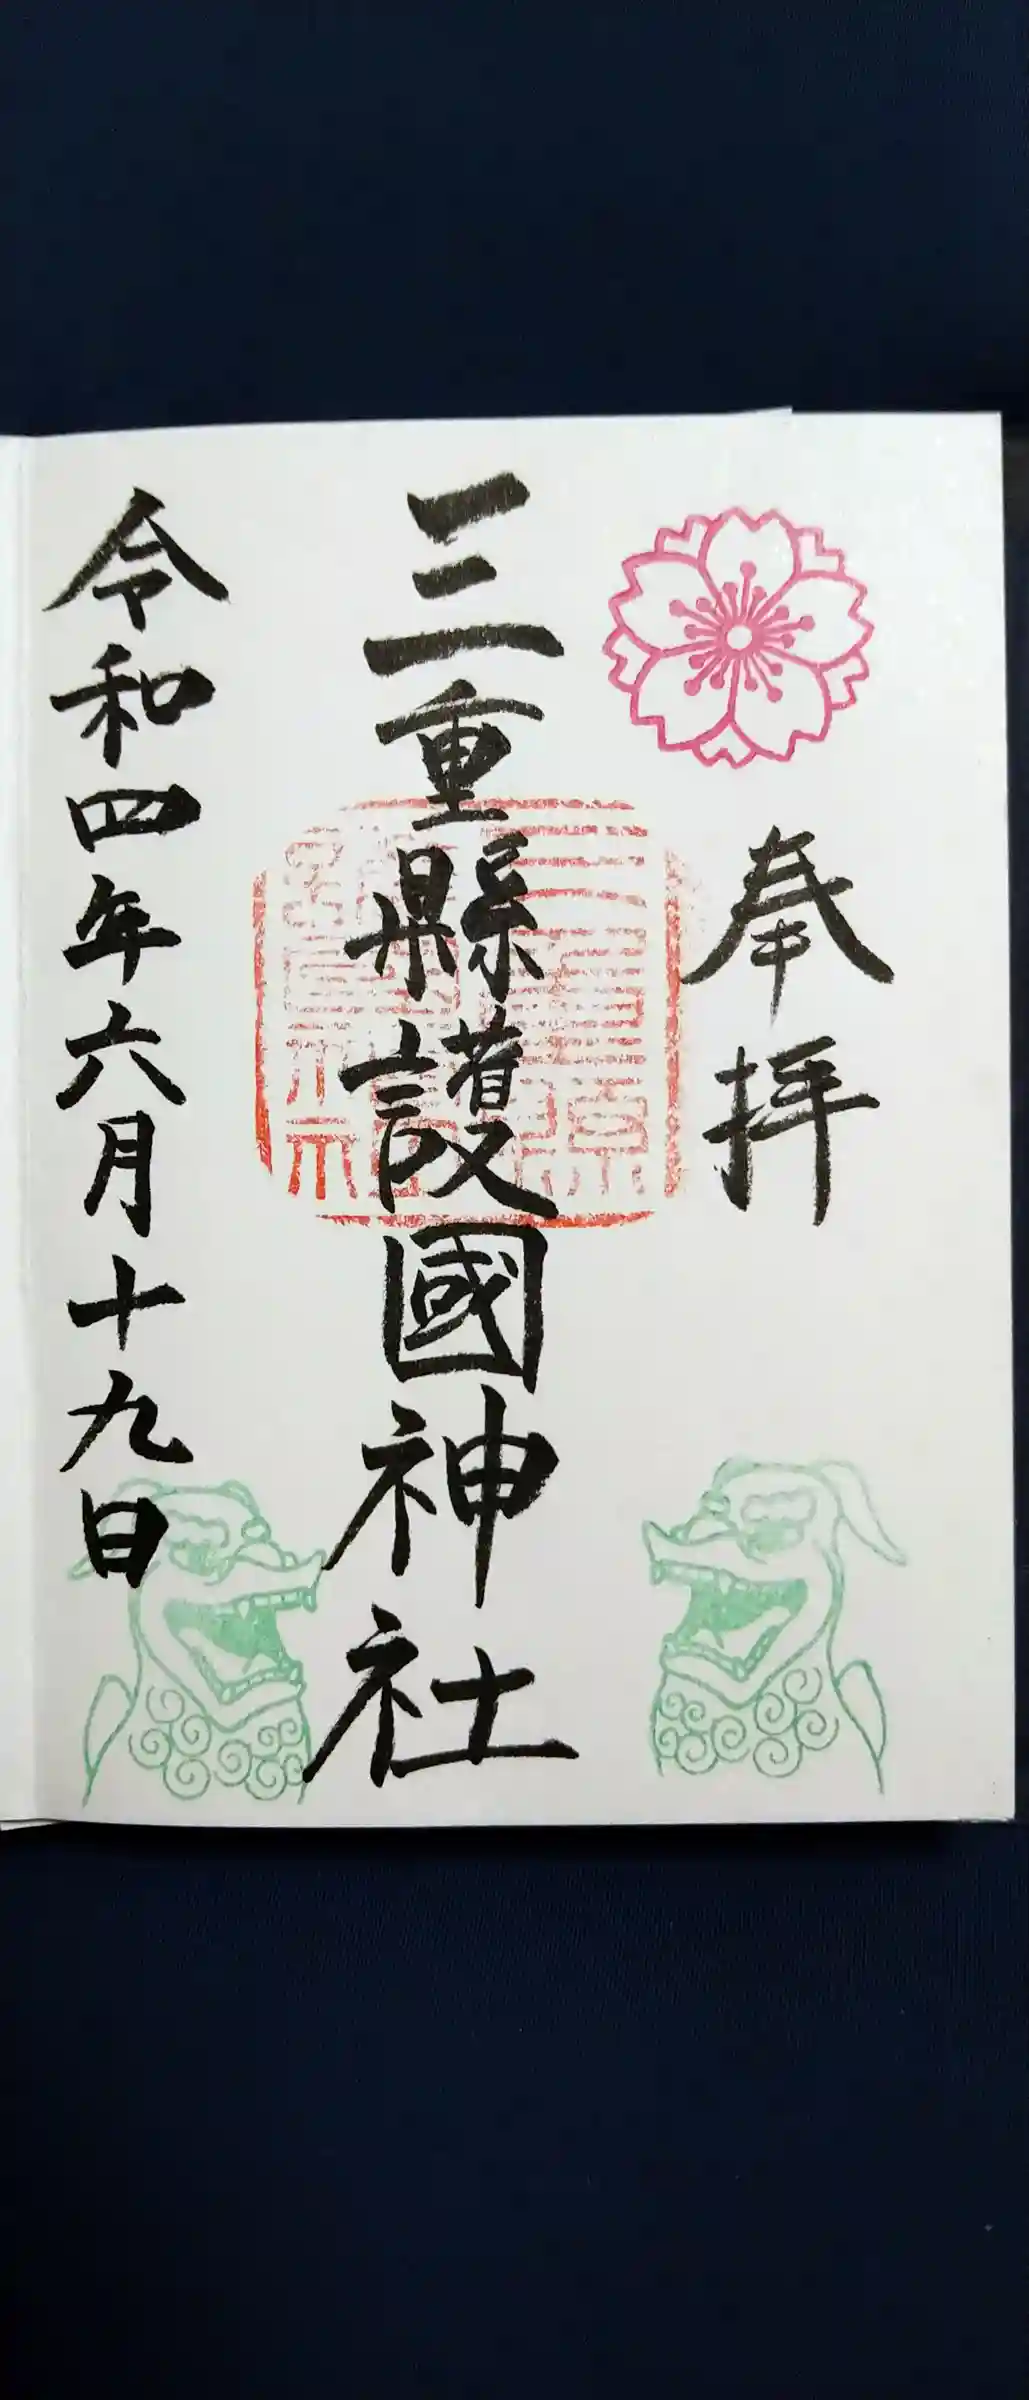 奉拝
三重縣護國神社
令和四年六月十九日